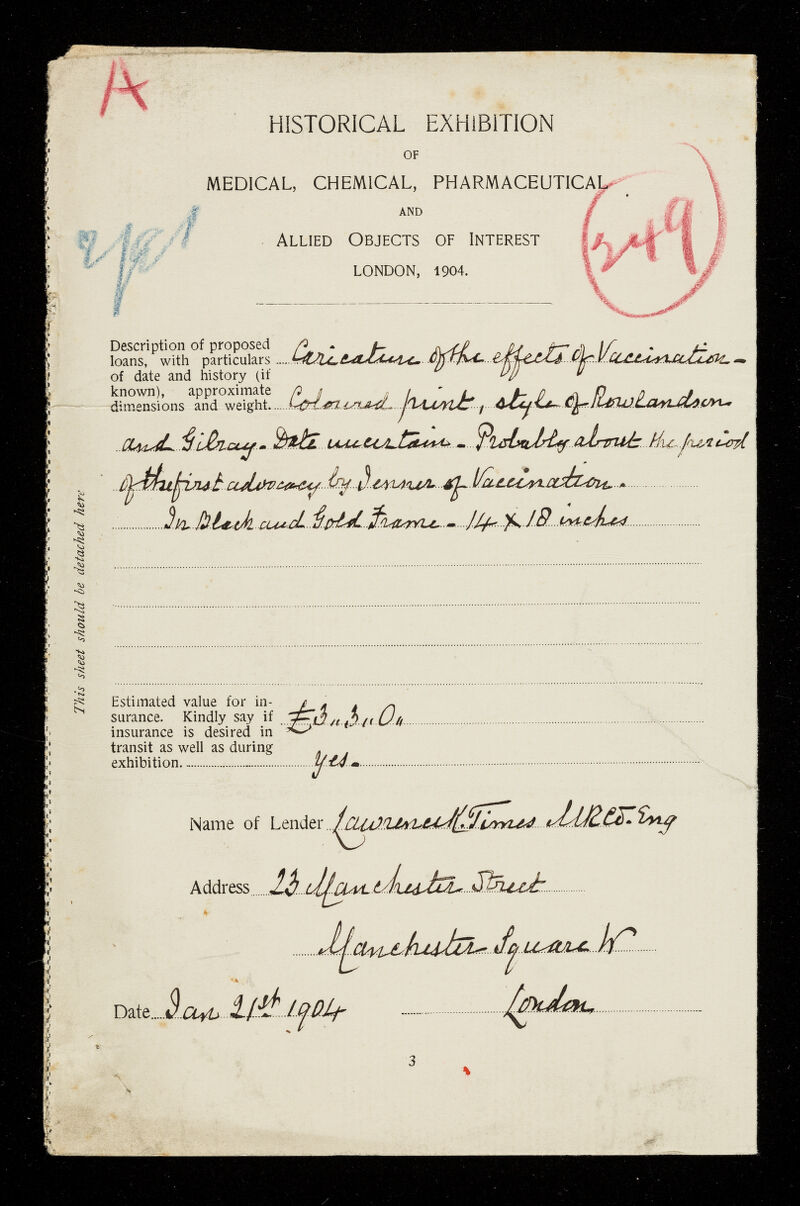 A
HISTORICAL EXHIBITION
OF
MEDICAL, CHEMICAL, PHARMACEUTICAL
AND
ALLIED OBJECTS OF INTEREST
LONDON, 1904.
349
Description of proposed
loans, with particulars
of date and history (if
known), approximate
dimensions and weight.
Caricature of the effects of Vaccination -
Coloured print, style of Rowlandson
and Gilray - Date uncertain - Probably about the period
of the first advocacy by Jenner of Vaccination.
In Black and Gold Frame - 14 X 18 inches
This sheet should be detached here
Estimated value for in-
surance. Kindly say if
insurance is desired in
transit as well as during
exhibition.
£3 " 3 " 0 "
Yes -
Name of Lender Lawrence K. Times MRCS. Eng
Address 23 Manchester Street
Manchester Square W
London
Date Jan 21st 1904
3